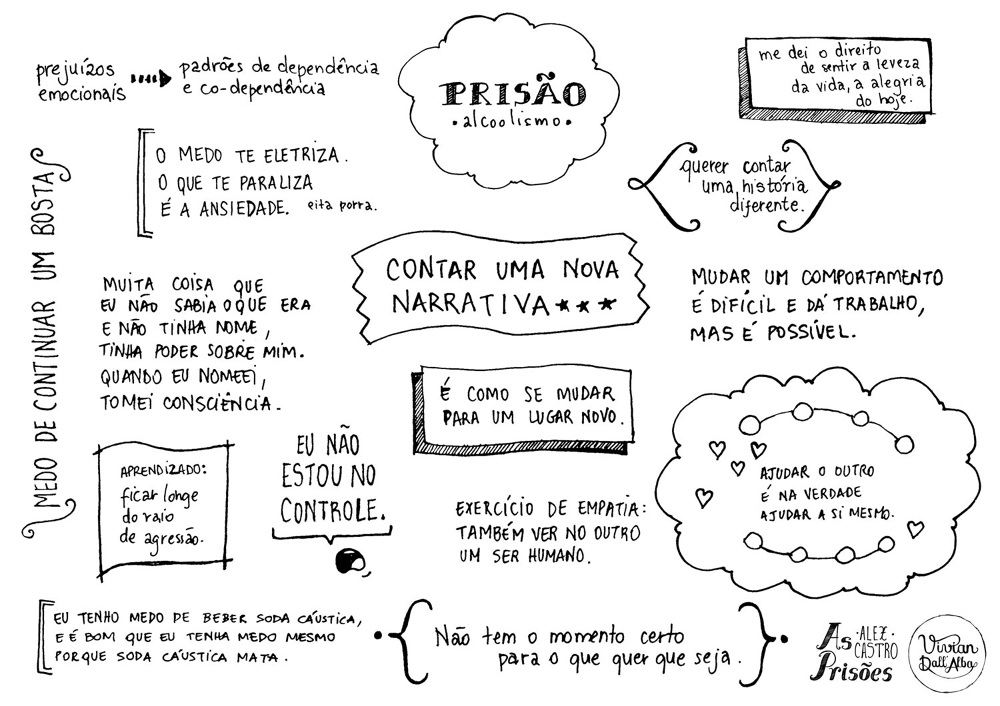 prejuízos
emocionais
padrões de dependência
e co-dependência
PRISÃO
• alcoolismo •
me dei o direito
de sentir a leveza
da vida, a alegria
do hoje.
MEDO DE CONTINUAR UM BOSTA
O MEDO TE ELETRIZA.
O QUE TE PARALIZA
É A ANSIEDADE. eita porra.
querer contar
uma história
diferente.
CONTAR UMA NOVA
NARRATIVA ★ ★ ★
MUITA COISA QUE
EU NÃO SABIA O QUE ERA
E NÃO TINHA NOME,
TINHA PODER SOBRE MIM.
QUANDO EU NOMEEI,
TOMEI CONSCIÊNCIA.
MUDAR UM COMPORTAMENTO
É DIFÍCIL E DÁ TRABALHO,
MAS É POSSÍVEL.
É COMO SE MUDAR
PARA UM LUGAR NOVO.
APRENDIZADO:
ficar longe
do raio
de agressão.
EU NÃO
ESTOU NO
CONTROLE.
EXERCÍCIO DE EMPATIA:
TAMBÉM VER NO OUTRO
UM SER HUMANO.
AJUDAR O OUTRO
É NA VERDADE
AJUDAR A SI MESMO.
EU TENHO MEDO DE BEBER SODA CÁUSTICA,
E É BOM QUE EU TENHA MEDO MESMO
PORQUE SODA CÁUSTICA MATA.
Não tem o momento certo
para o que quer que seja.
As
Prisões
• ALEX •
CASTRO
Vivian
Dall'Alba